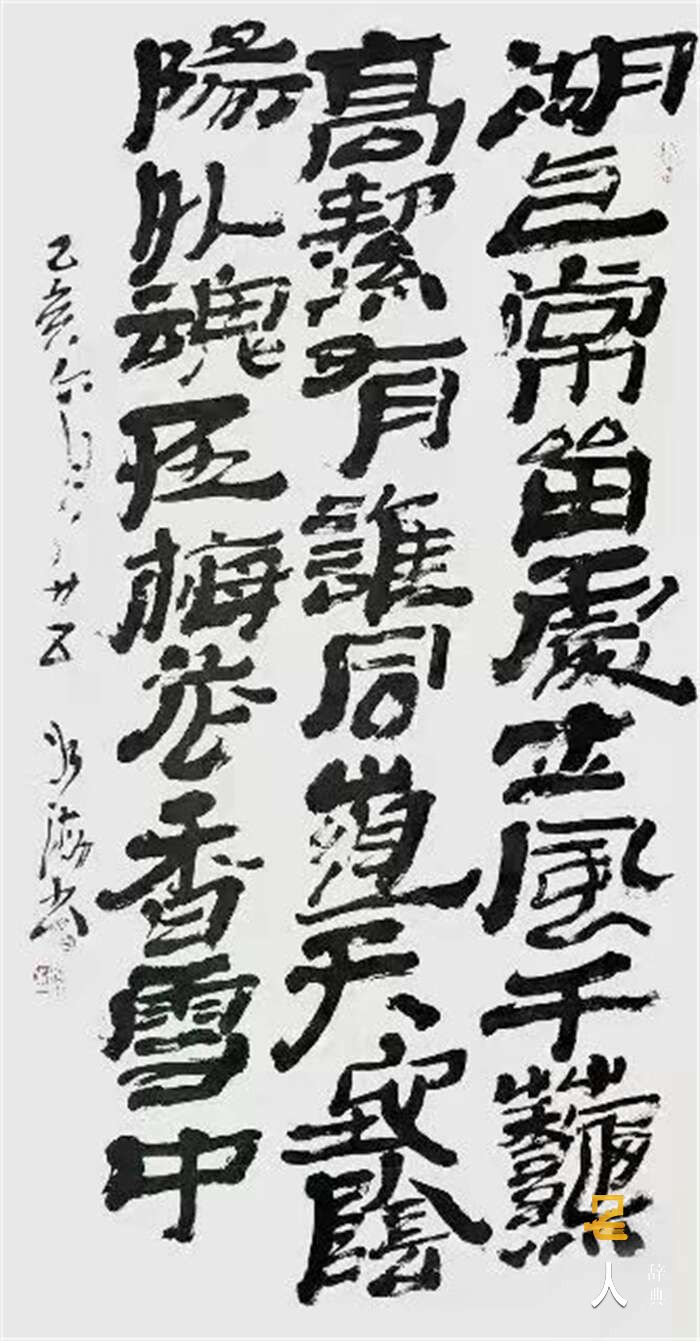 湖上常留處士風千
高潔有誰同道天陰
陽外魂在梅花香雪中
己亥六月廿五 書
名人
辞典